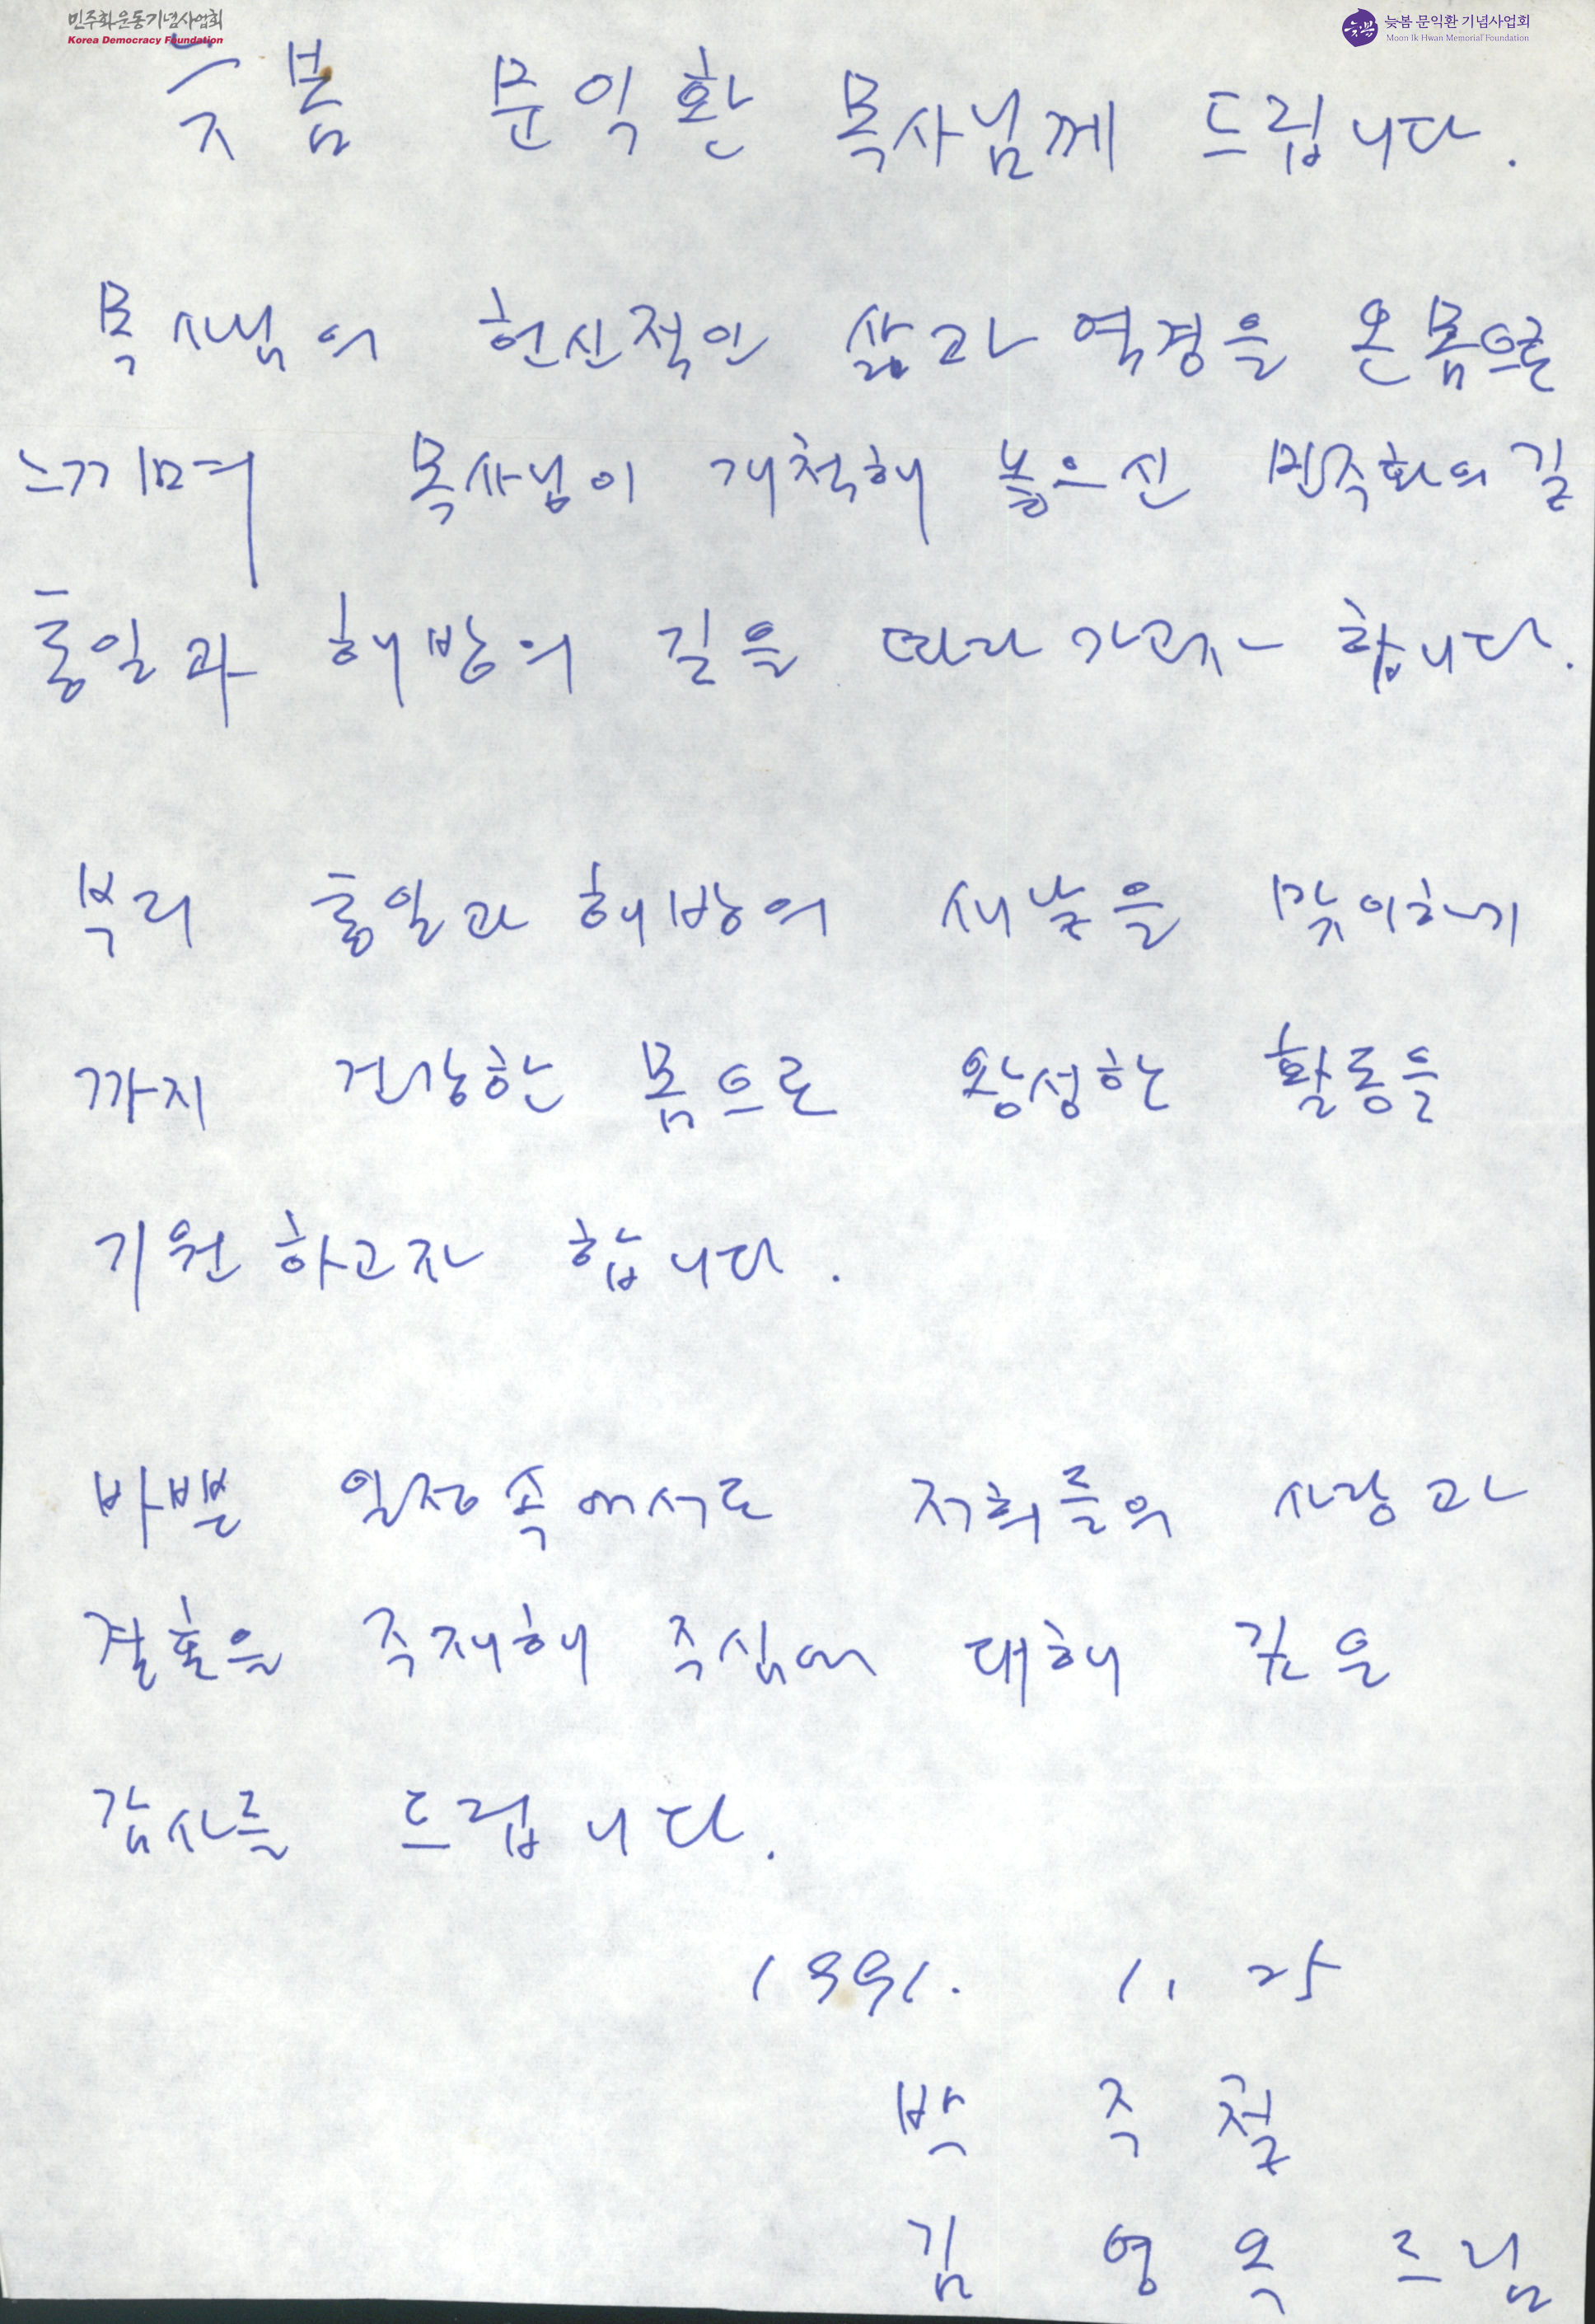 민주화운동기념사업회
Korea Democracy Foundation
늦봄 문익환 기념사업회
Moon Ik Hwan Memorial Foundation
늦봄
늦봄 문익환 목사님께 드립니다.
목사님의 헌신적인 삶과 역경을 온몸으로
느끼며 목사님이 개척해 놓으신 민주화의 길
통일과 해방의 길을 따라가고자 합니다.
부디 통일과 해방의 새날을 맞이하기
까지 건강한 몸으로 왕성한 활동을
기원하고자 합니다.
바쁜 일정속에서도 저희들의 사랑과
결혼을 주재해 주심에 대해 깊은
감사를 드립니다.
1991. 1. 25
박 주
김 영 옥 드림